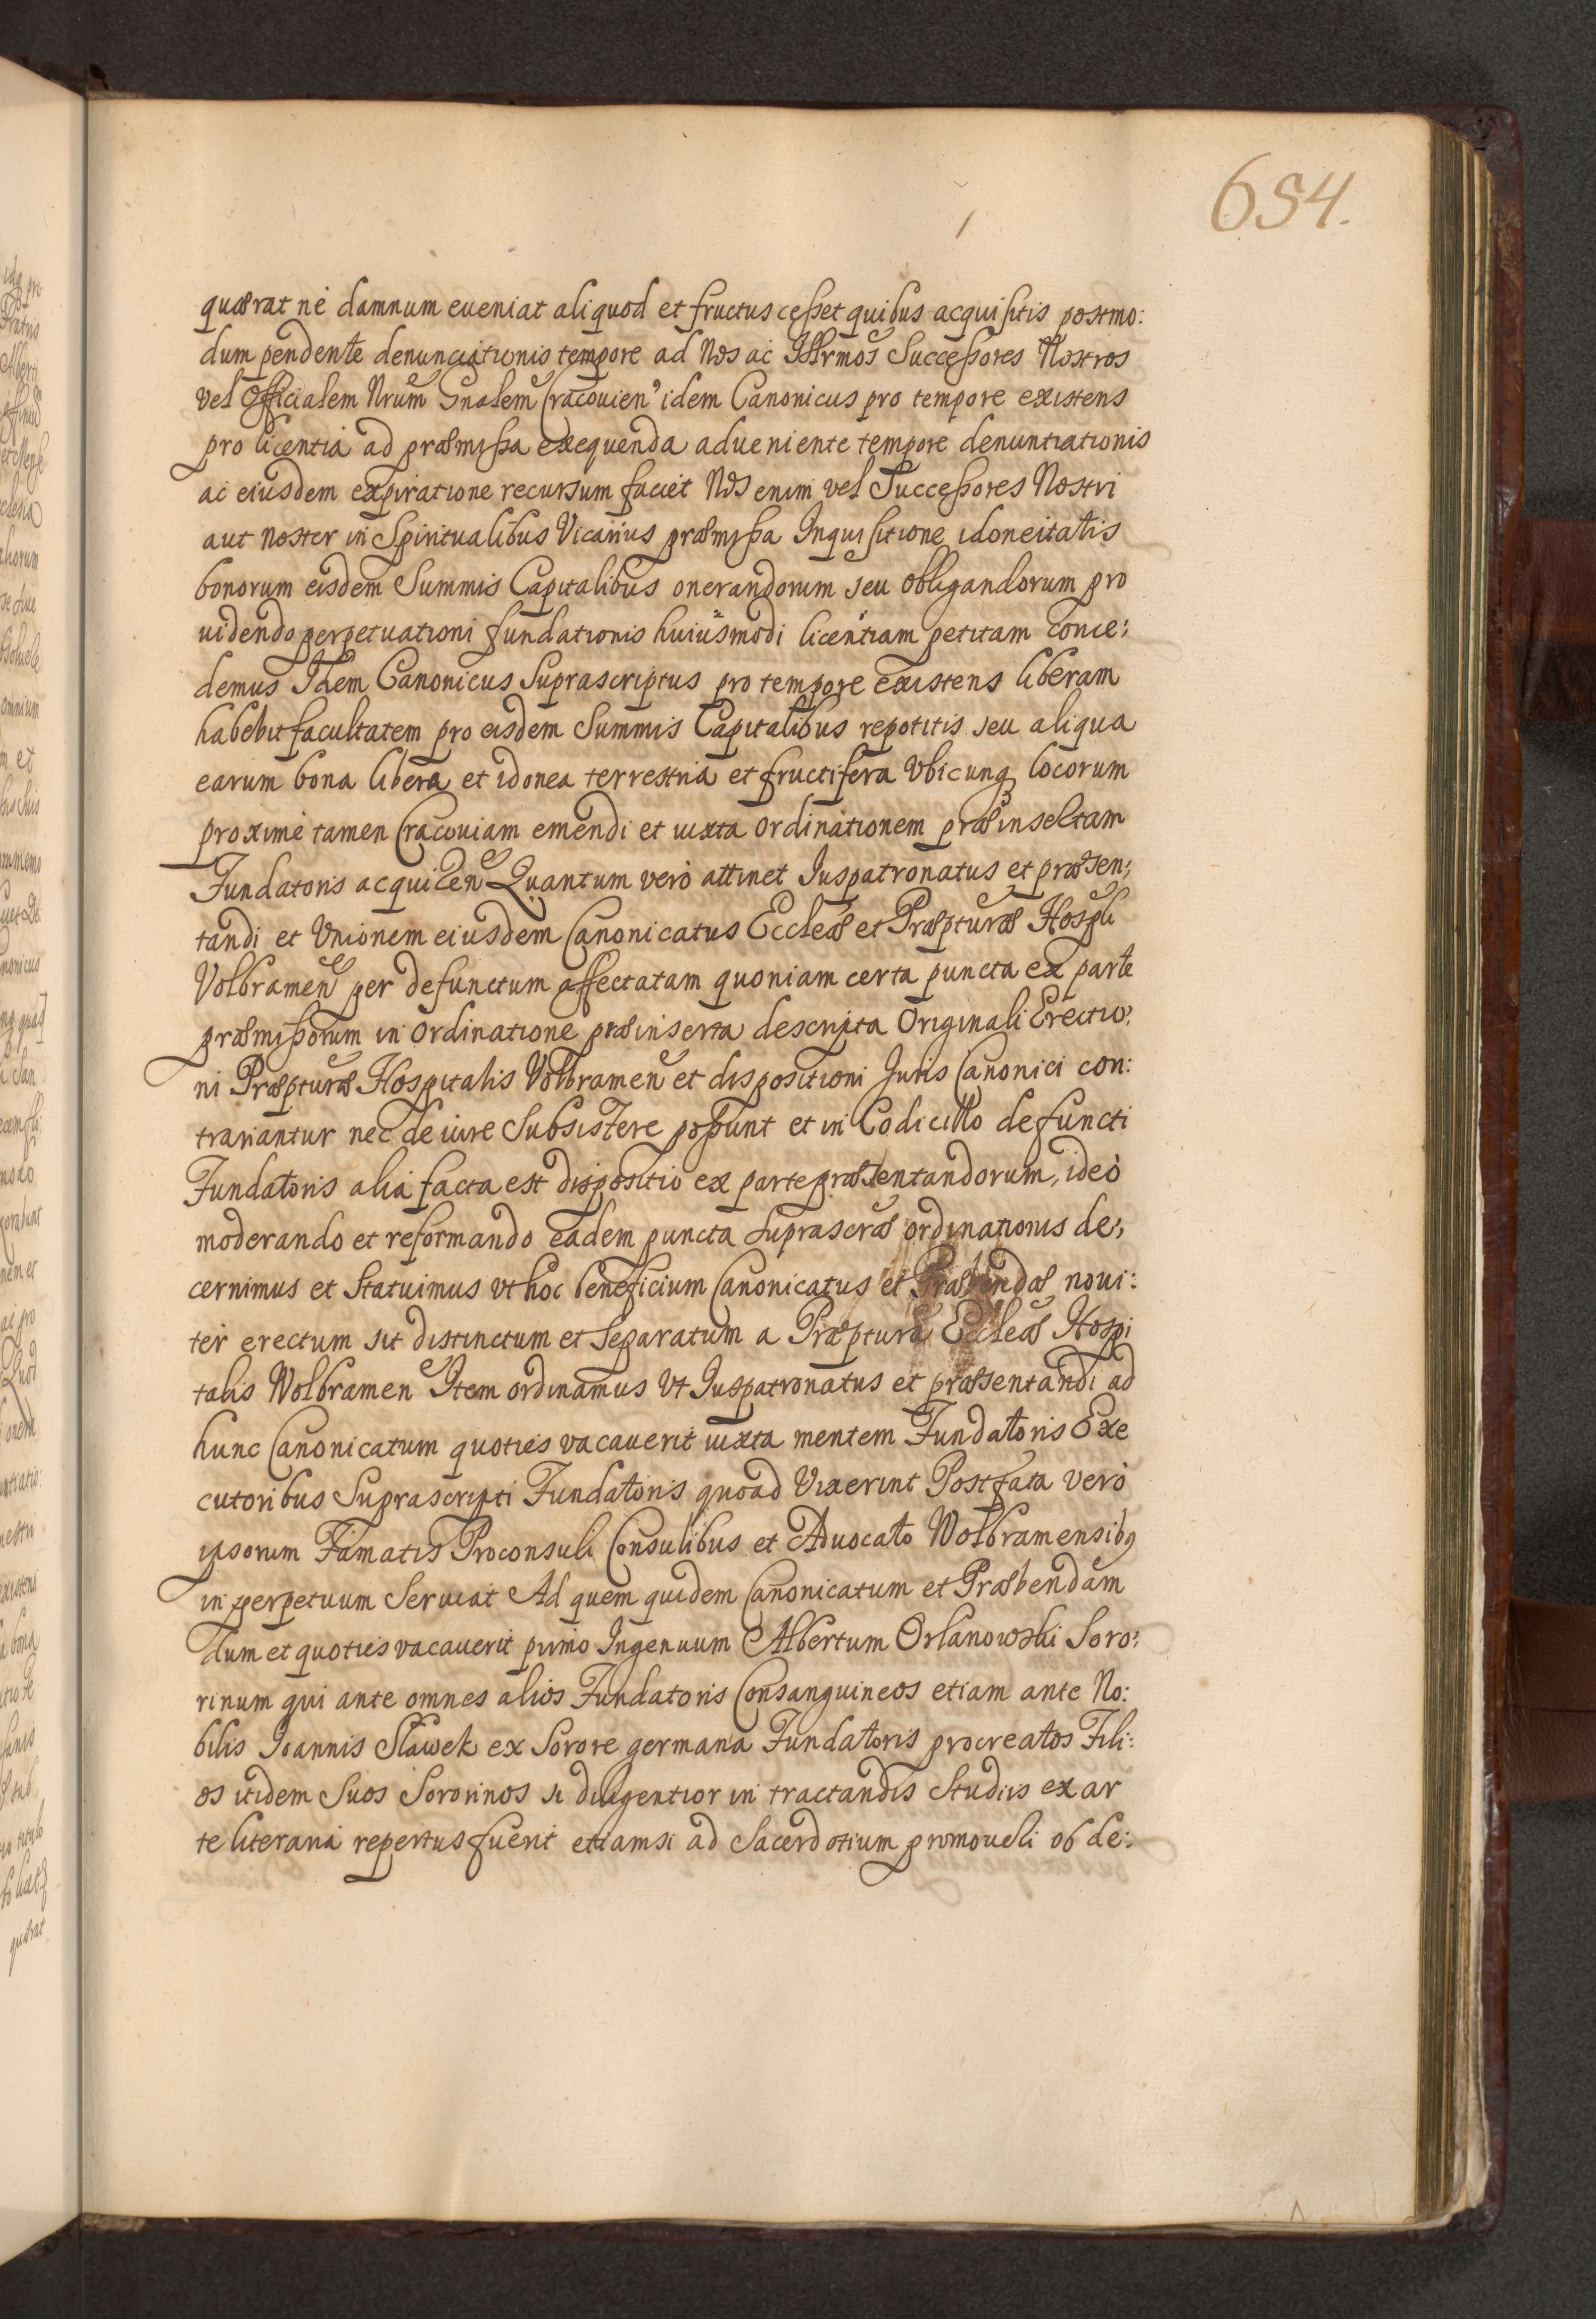 654.
quærat nè damnum eueniat aliquod et fructus cesset quibus acquisitis postmo:
dum pendente denunciationis tempore ad Nos ac Illrmos Successores Nostros
vel Officialem Nrum Gnalem Cracouien' idem Canonicus pro tempore existens
pro licentia ad præmissa exequenda adueniente tempore denuntiationis
ac eiusdem expiratione recursum faciet Nos enim vel Successores Nostri
aut noster in Spiritualibus Vicarius præmissa Inquisitione idoneitatis
bonorum eisdem Summis Capitalibus onerandorum seu obligandorum pro
uidendo perpetuationi fundationis huiusmodi licentiam petitam conce:
demus Idem Canonicus Suprascriptus pro tempore existens liberam
habebit facultatem pro eisdem Summis Capitalibus repotitis seu aliqua
earum bona libera et idonea terrestria et fructifera Vbicunq locorum
proximè tamen Cracouiam emendi et iuxta ordinationem præinsertam
Fundatoris acquiren Quantum verò attinet Iuspatronatus et præsen:
tandi et Vnionem eiusdem Canonicatus Eccleæ et Præpturæ Hospli
Volbramen per defunctum affectatam quoniam certa puncta ex parte
præmissorum in ordinatione præinserta descripta Originali Erectio:
ni Præpturæ Hospitalis Volbramen et dispositioni Juris Canonici con:
trariantur nec de iure Subsistere possunt et in Codicillo defuncti
Fundatoris alia facta est dispositio ex parte præsentandorum, ideò
moderando et reformando eadem puncta suprascræ ordinationis de:
cernimus et Statuimus vt hoc beneficium Canonicatus et Præbendæ noui:
ter erectum sit distinctum et Separatum a Præptura Eccleæ Hospi
talis Wolbramen Item ordinamus Vt Iuspatronatus et præsentandi ad
hunc Canonicatum quoties vacauerit iuxta mentem Fundatoris Exe
cutoribus Suprascripti Fundatoris quoad Vixerint Post fata verò
ipsorum Famatis Proconsuli Consulibus et Aduocato Wolbramensibq
in perpetuum Seruiat Ad quem quidem Canonicatum et Præbendam
dum et quoties vacauerit primo Ingenuum Albertum Orlanowski Soro:
rinum qui ante omnes alios Fundatoris Consanguineos etiam ante No:
bilis Ioannis Sławek ex Sorore germana Fundatoris procreatos Fili:
os itidem Suos Sororinos si diligentior in tractandis Studiis ex ar
te literaria repertus fuerit etiamsi ad Sacerdotium promoueri ob de: